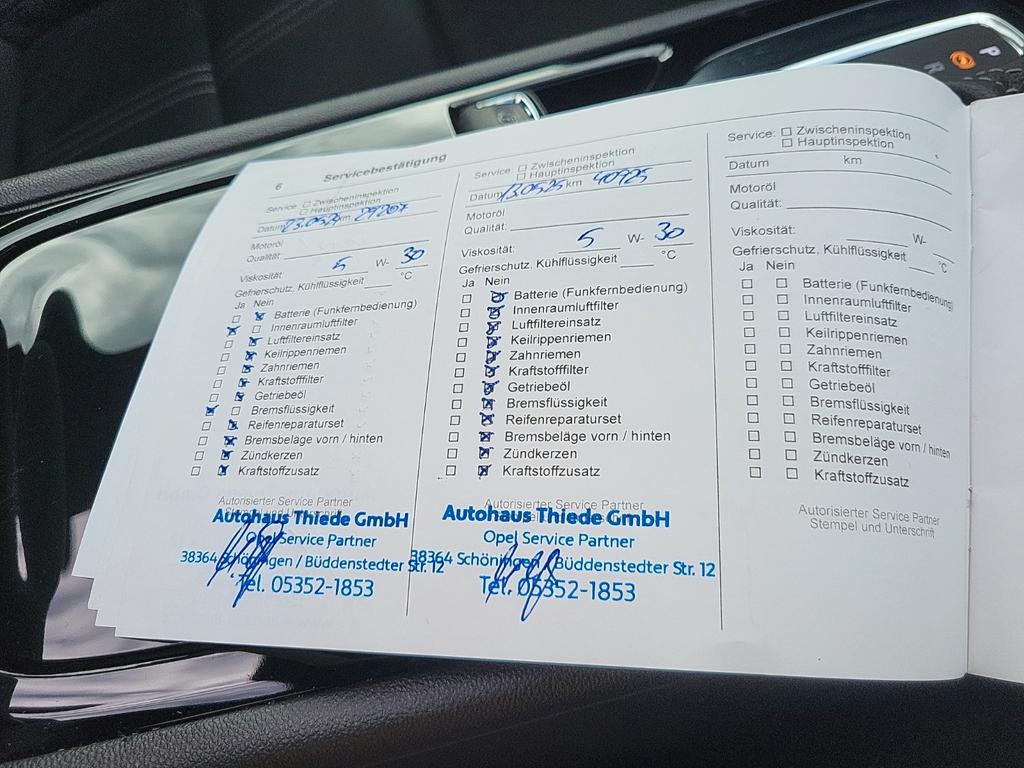 6 Servicebestätigung
Service: ☐ Zwischeninspektion
☐ Hauptinspektion
Datum km 29207
Motoröl
Qualität:
Viskosität: 5 W- 30
Gefrierschutz, Kühlflüssigkeit °C
Ja Nein
☐ ☒ Batterie (Funkfernbedienung)
☒ ☐ Innenraumluftfilter
☐ ☒ Luftfiltereinsatz
☐ ☒ Keilrippenriemen
☐ ☒ Zahnriemen
☐ ☒ Kraftstofffilter
☐ ☒ Getriebeöl
☒ ☐ Bremsflüssigkeit
☐ ☒ Reifenreparaturset
☐ ☒ Bremsbeläge vorn / hinten
☐ ☒ Zündkerzen
☐ ☒ Kraftstoffzusatz
Autorisierter Service Partner
Stempel und Unterschrift
Autohaus Thiede GmbH
Opel Service Partner
38364 Schöningen / Büddenstedter Str. 12
Tel. 05352-1853
Service: ☐ Zwischeninspektion
☐ Hauptinspektion
Datum 13.05.25 km 40925
Motoröl
Qualität:
Viskosität: 5 W- 30
Gefrierschutz, Kühlflüssigkeit °C
Ja Nein
☐ ☒ Batterie (Funkfernbedienung)
☐ ☒ Innenraumluftfilter
☐ ☒ Luftfiltereinsatz
☐ ☒ Keilrippenriemen
☐ ☒ Zahnriemen
☐ ☒ Kraftstofffilter
☐ ☒ Getriebeöl
☐ ☒ Bremsflüssigkeit
☐ ☒ Reifenreparaturset
☐ ☒ Bremsbeläge vorn / hinten
☐ ☒ Zündkerzen
☐ ☒ Kraftstoffzusatz
Autorisierter Service Partner
Autohaus Thiede GmbH
Opel Service Partner
38364 Schöningen / Büddenstedter Str. 12
Tel. 05352-1853
Service: ☐ Zwischeninspektion
☐ Hauptinspektion
Datum km
Motoröl
Qualität:
Viskosität: W-
Gefrierschutz, Kühlflüssigkeit °C
Ja Nein
☐ ☐ Batterie (Funkfernbedienung)
☐ ☐ Innenraumluftfilter
☐ ☐ Luftfiltereinsatz
☐ ☐ Keilrippenriemen
☐ ☐ Zahnriemen
☐ ☐ Kraftstofffilter
☐ ☐ Getriebeöl
☐ ☐ Bremsflüssigkeit
☐ ☐ Reifenreparaturset
☐ ☐ Bremsbeläge vorn / hinten
☐ ☐ Zündkerzen
☐ ☐ Kraftstoffzusatz
Autorisierter Service Partner
Stempel und Unterschrift
P
R